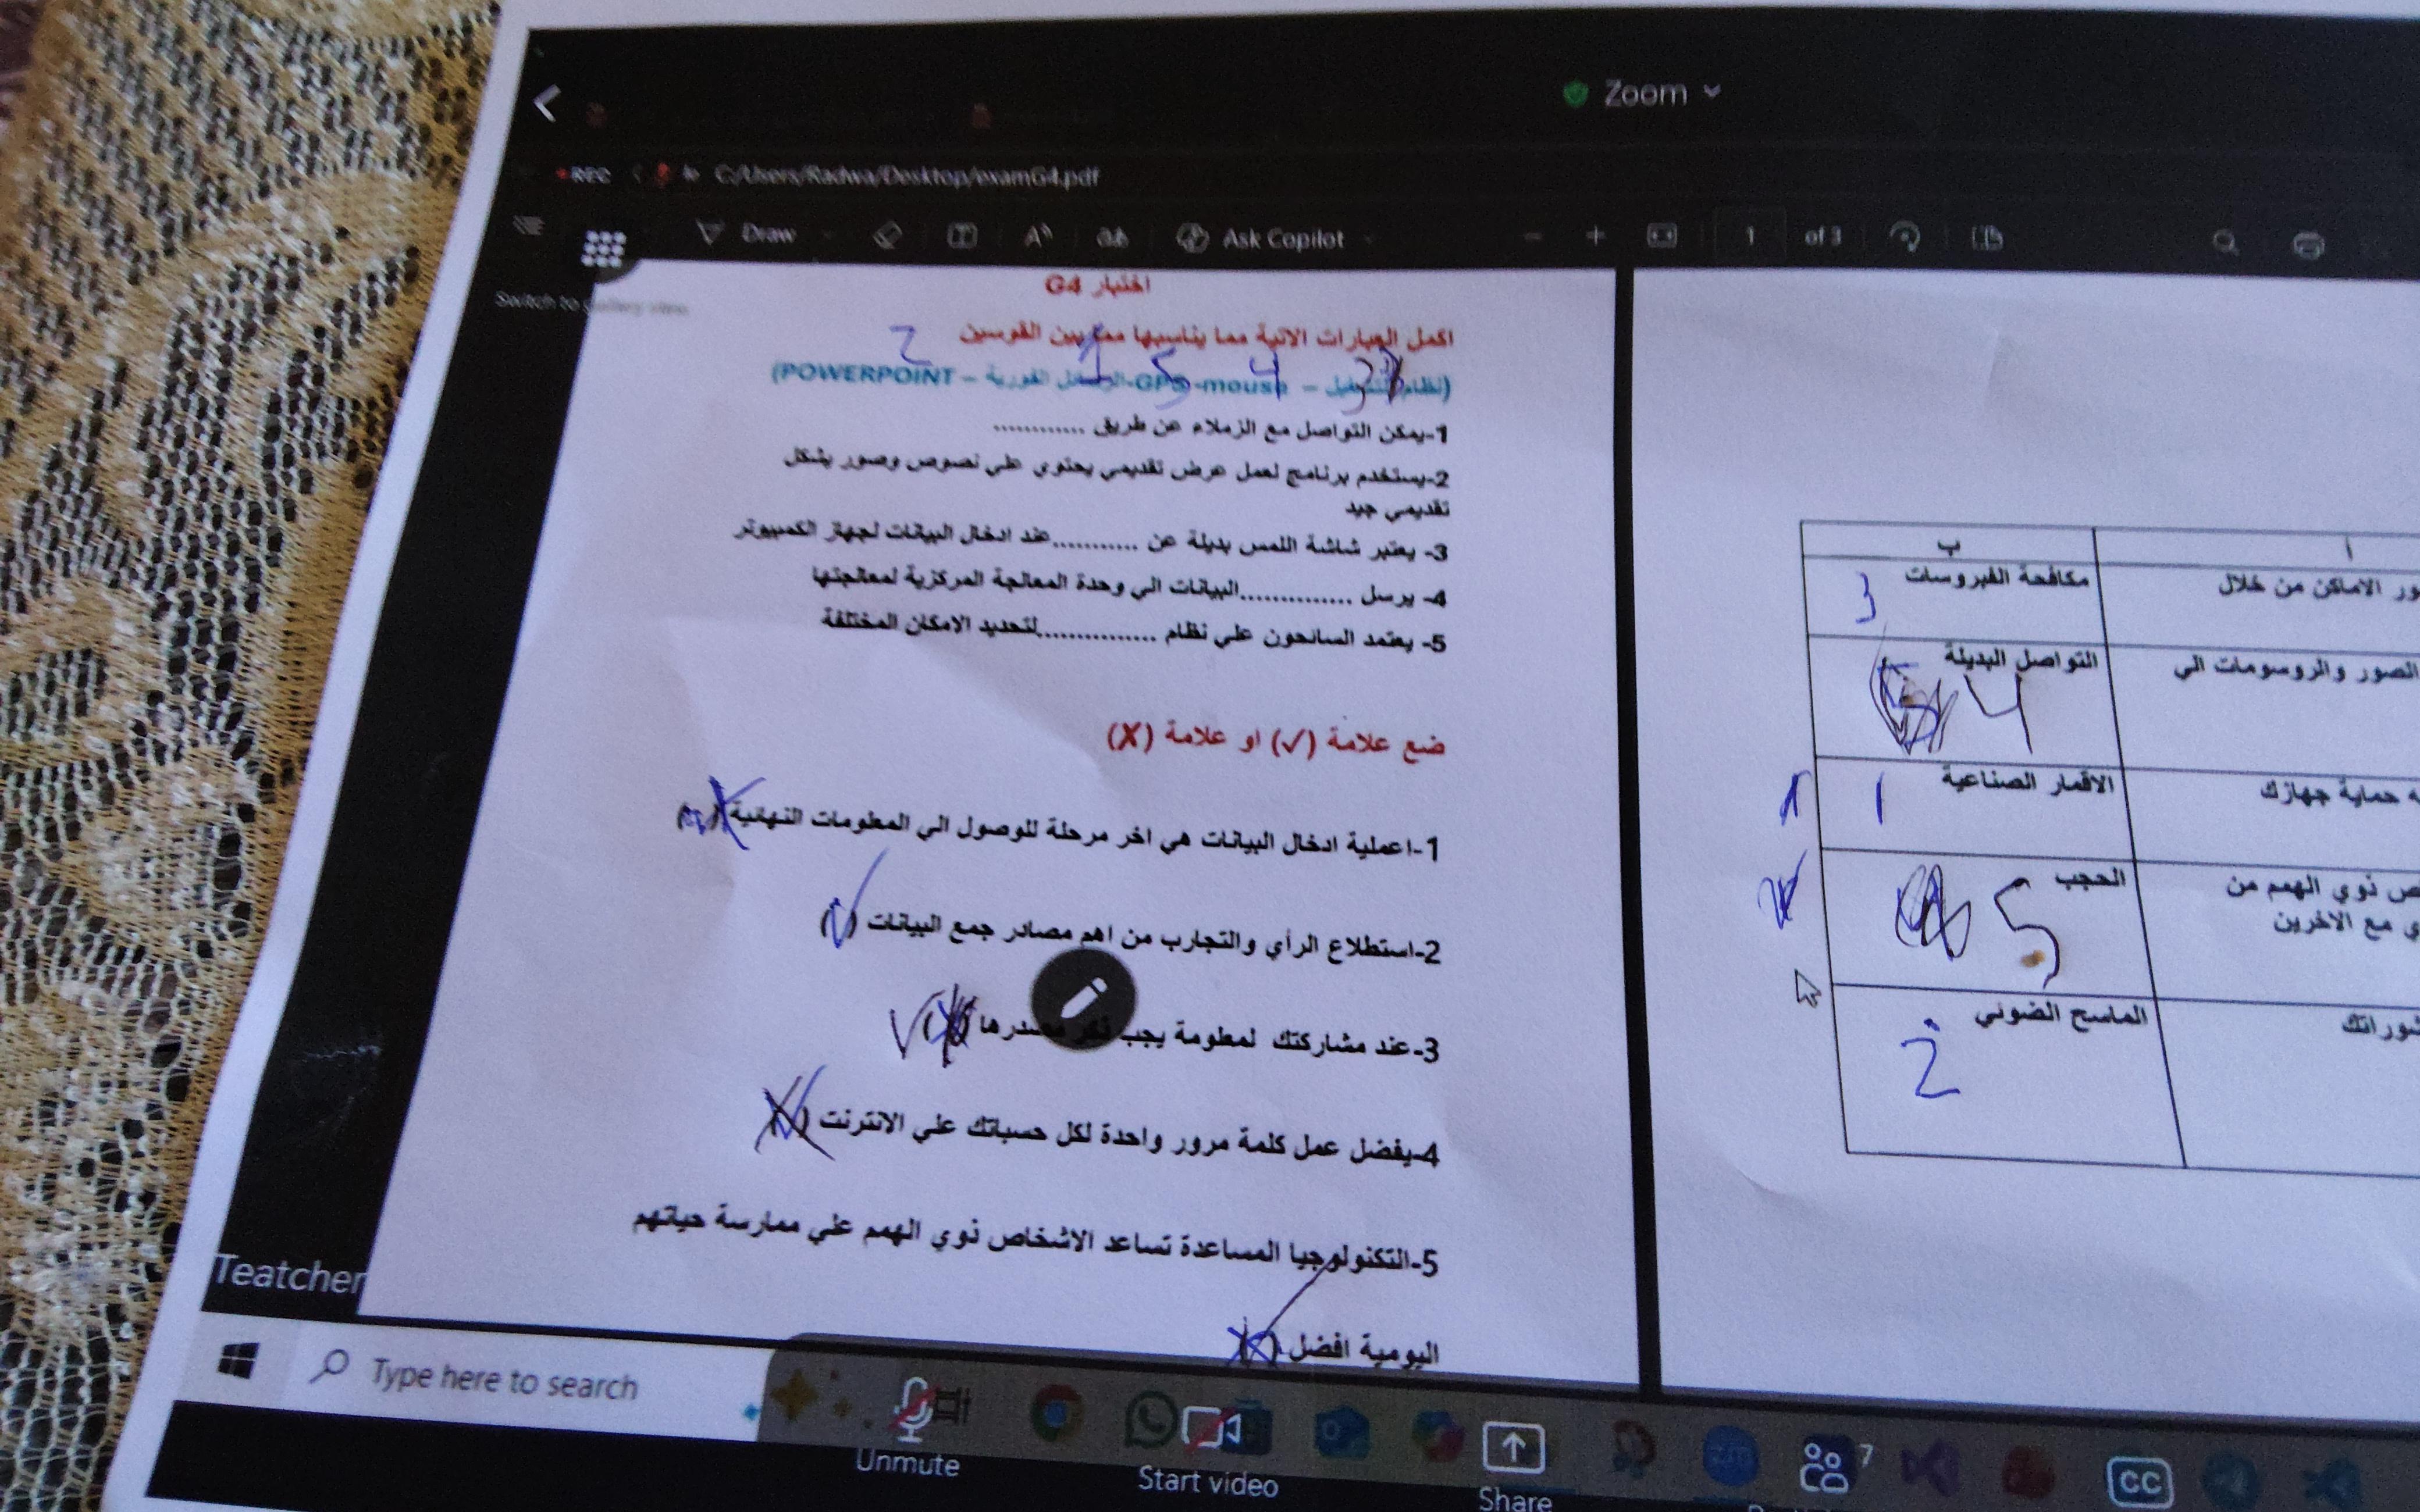 Zoom
REC C:/Users/Radwa/Desktop/examG4.pdf
Draw Ask Copilot 1 of 3
Switch to Gallery view
اختبار G4
اكمل العبارات الاتية مما يناسبها مما بين القوسين
2 1 5 4 3
(نظام التشغيل – mouse-GPS-الرسائل الفورية – POWERPOINT)
1-يمكن التواصل مع الزملاء عن طريق ............
2-يستخدم برنامج لعمل عرض تقديمي يحتوي علي نصوص وصور بشكل
تقديمي جيد
3- يعتبر شاشة اللمس بديلة عن ...........عند ادخال البيانات لجهاز الكمبيوتر
4- يرسل ..............البيانات الي وحدة المعالجة المركزية لمعالجتها
5- يعتمد السائحون علي نظام ..............لتحديد الامكان المختلفة
ضع علامة (✓) او علامة (X)
1-اعملية ادخال البيانات هي اخر مرحلة للوصول الي المعلومات النهائية X
2-استطلاع الرأي والتجارب من اهم مصادر جمع البيانات (✓)
3-عند مشاركتك لمعلومة يجب ذكر مصدرها ✓
4-يفضل عمل كلمة مرور واحدة لكل حسباتك علي الانترنت X
5-التكنولوجيا المساعدة تساعد الاشخاص ذوي الهمم علي ممارسة حياتهم
اليومية افضل
أ ب
ور الاماكن من خلال
مكافحة الفيروسات 3
الصور والروسومات الي
التواصل البديلة 4
ه حماية جهازك
الاقمار الصناعية 1
ص ذوي الهمم من
ي مع الاخرين
الحجب 5
شوراتك
الماسح الضوئي 2
Teatcher
Type here to search
Unmute
Start video
Share
7
CC